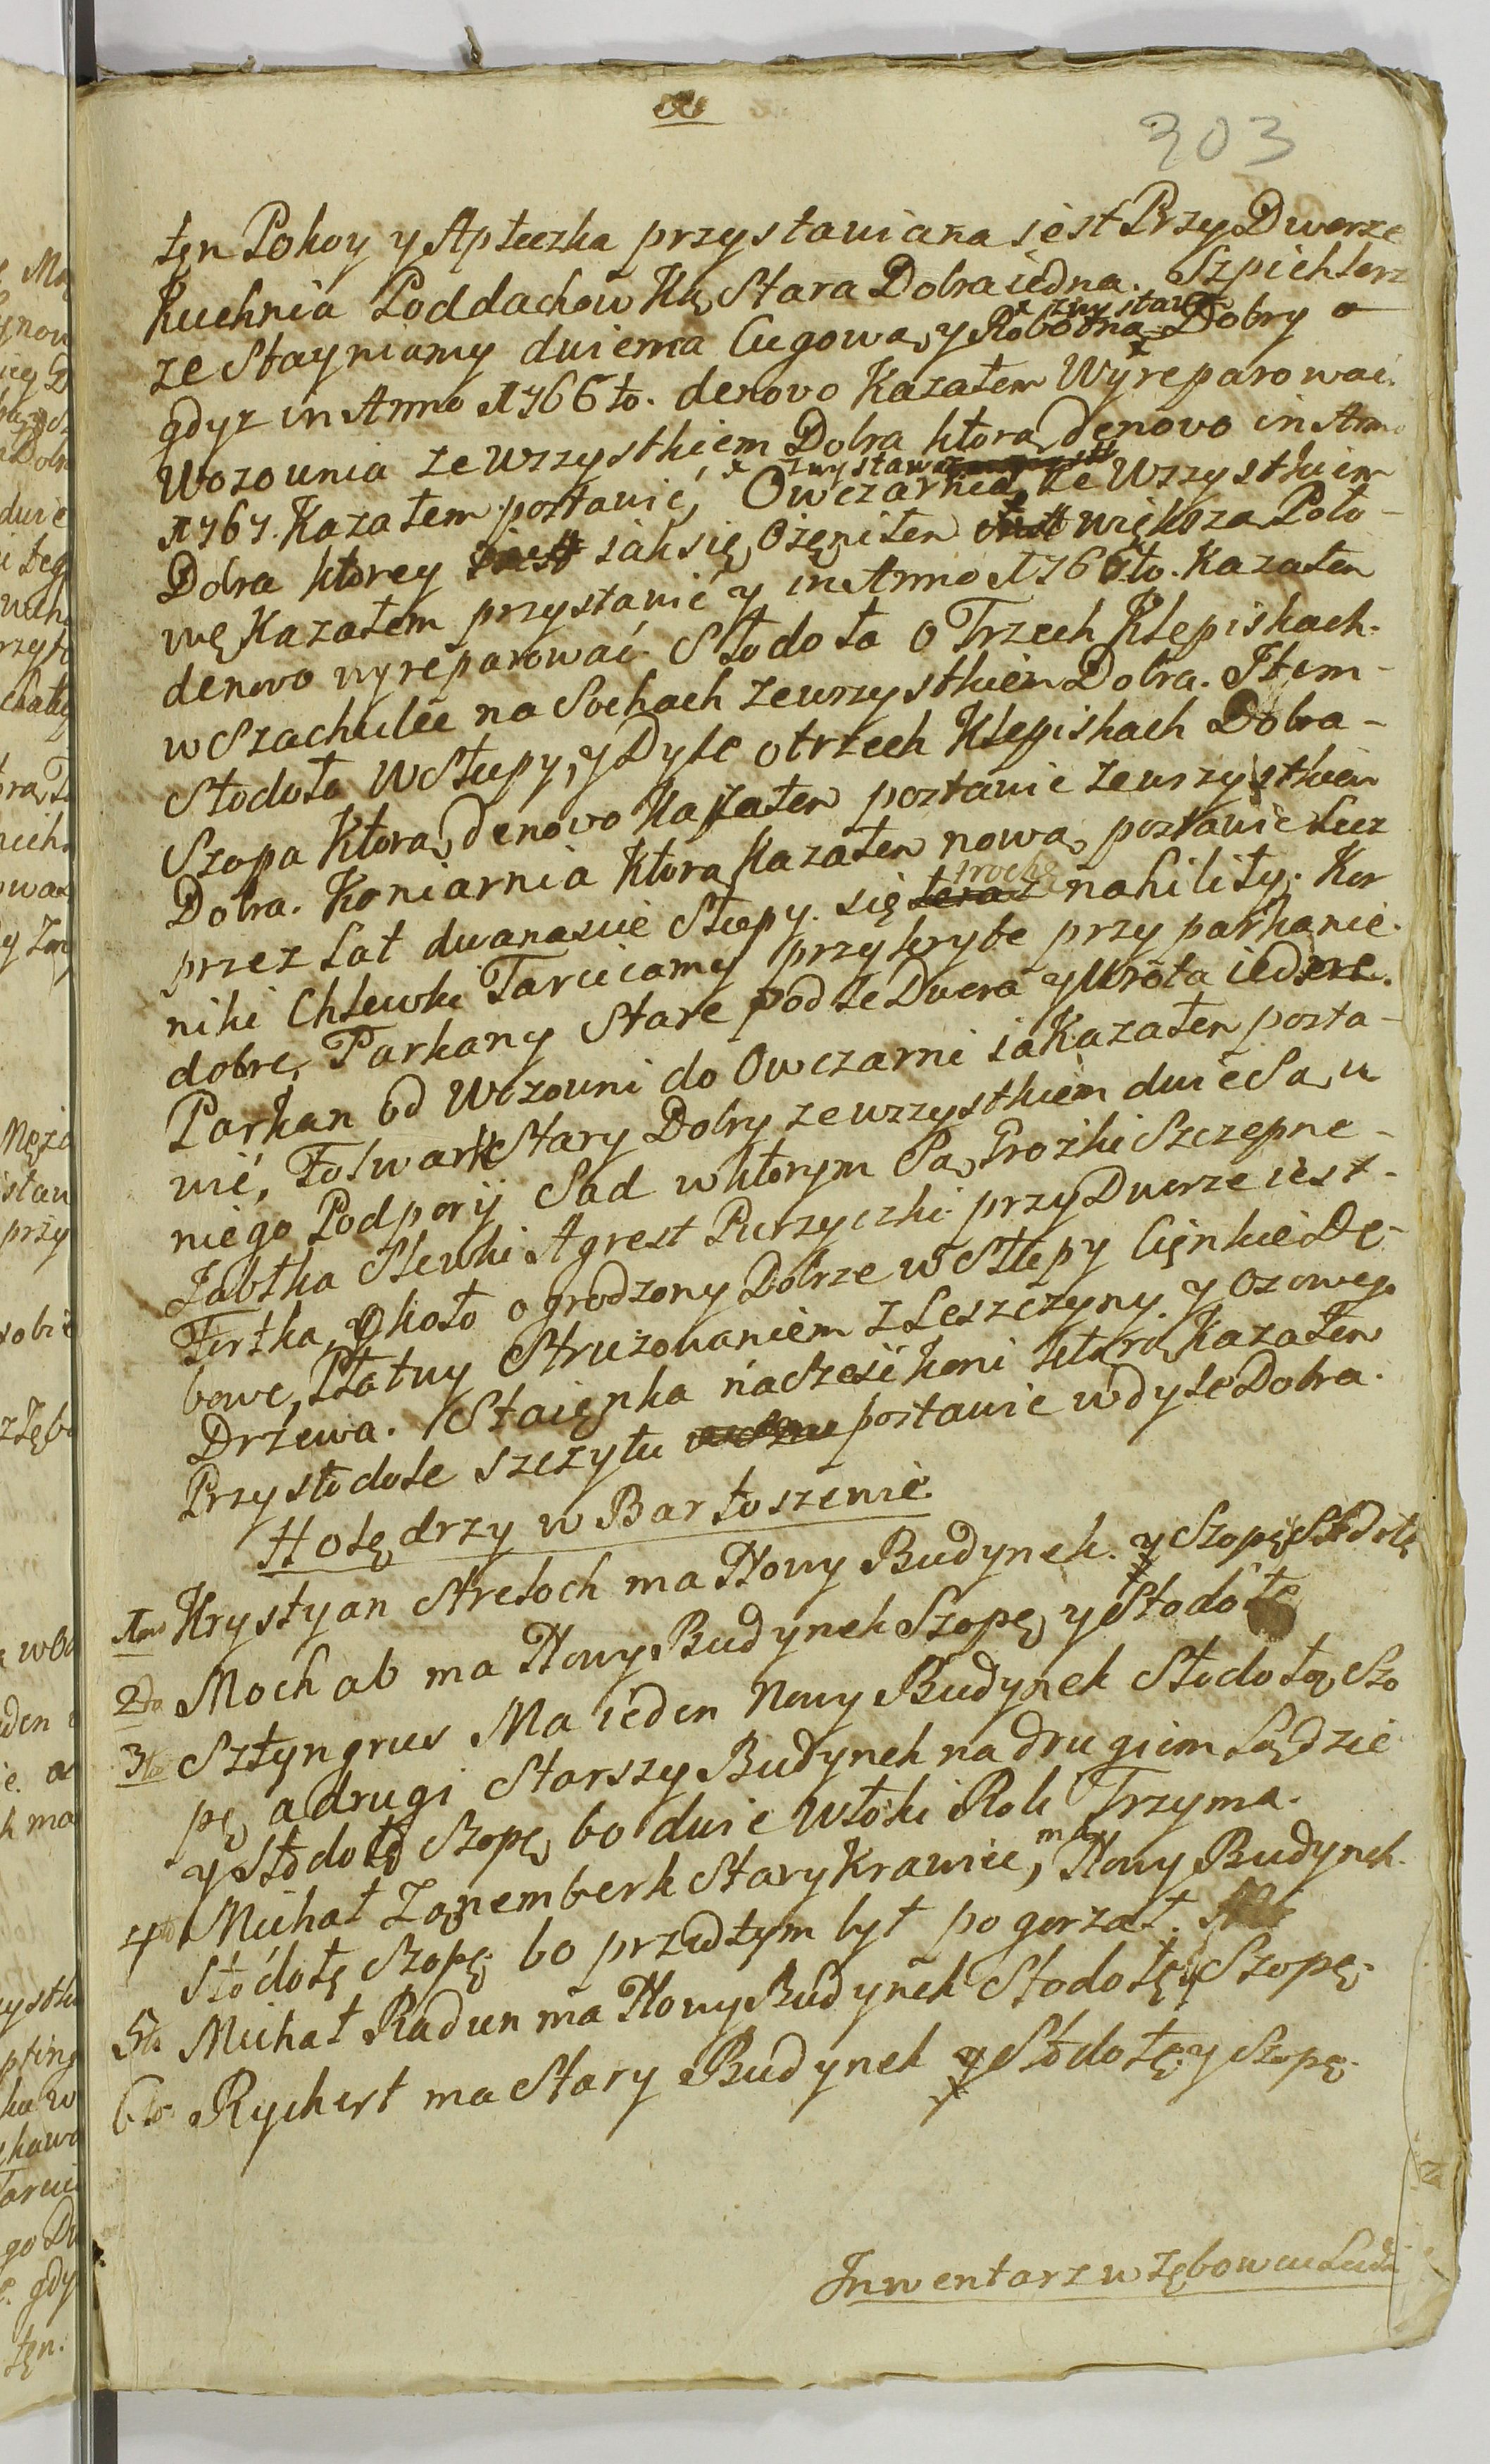 303
tęn Pokoy y Apteczka przystawiana jest Przy Dworze
Kuchnia Poddachowką Stara Dobra iedna. Szpichlerz
zwystawą
ze Stayniamy dwiema Cugową, y Robotna Dobry
gdyz in Anno 1766to. denovo Kazałem Wyreparować.
Wozownia ze wszystkiem Dobra ktorą denovo in Anno
zwystawą
1767. Kazałem postawić, Owczarnia ze Wszystkiem
Dobra ktorey iak się Ożęniłem większą Poło-
wę Kazałem przystawić y in Anno 1766to. Kazałem
denovo wyreparować. Stodoła o Trzech Klepiskach
w Szachulec na Sochach ze wszystkiem Dobra. Item-
Stodoła w Słupy, y Dyle o trzech Klepiskach Dobra-
Szopa Ktorą denovo Kazałem postawic ze wszystkiem
Dobra. Koniarnia Ktorą Kazałem nową postawic Lecz
troche
przez Lat dwanascie Słupy. się teraz nakiliły. Kur
niki Chlewki Tarcicamy przykryte przy parkanie.
dobre, Parkany Stare podle Dwora y Wrota iedne.
Parkan od Wozowni do Owczarni ia Kazałem posta-
wić, Folwark Stary Dobry ze wszystkiem dwie Są u
niego Podpory Sad w ktorym Są Grożki Szczepne-
Jabłka Slewki Agrest Purzyczki przy Dworze iest-
Fortka, Około ogrodzony Dobrze w Słupy Cięnkie Dę-
bowe, Płatwy Struzowaniem z Leszczyny. y Ozowego
Drzewa. Staięnka na Sześć koni ktorą Kazałem
Przystodole szczytu postawic w dyle Dobra.
Holędrzy w Bartoszewie.
1mo Krystyan Streloch ma Nowy Budynek. y Szopę Stodołę
2do Mochab ma Nowy Budynek Szopę, y Stodołę
3tio Sztyngrus Ma ieden Nowy Budynek Stodołą Szo
pę, a drugi Starszy Budynek na drugim Lędzie
y Stodołę Szopę, bo dwie Włoki Roli Trzyma.
ma
4to Michał Zonemberk Stary Krawiec, Nowy Budynek.
Stodołę Szopę, bo przedtym był pogorzał.
5to Michał Radun ma Nowy Budynek Stodołę y Szopę.
6to Rychert ma Stary Budynek y Stodołę y Szopę.
Inwentarz w Zębowcu Ludzi